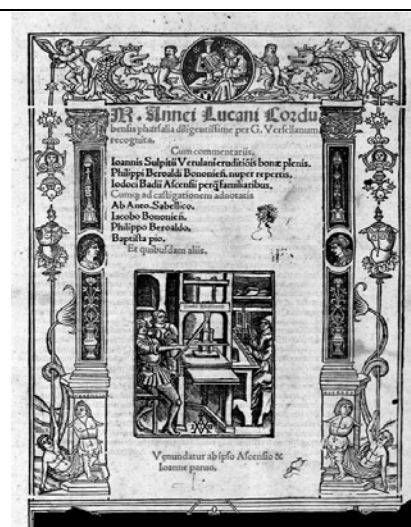 M. Annei Lucani Cordu
bensis pharsalia diligentissime per G. Versellanum
recognita.
Cum commentariis,
Ioannis Sulpitii Verulani eruditiõis bonæ plenis.
Philippi Beroaldi Bononieñ. nuper repertis.
Iodoci Badii Ascensii perq̃ familiaribus.
Cumq; ad castigationem adnotatis
Ab Anto. Sabellico.
Iacobo Bononieñ.
Philippo Beroaldo.
Baptista pio.
Et quibusdam aliis.
Venundatur ab ipso Ascensio &
Ioanne paruo.